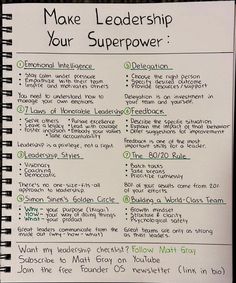 Make Leadership
Your Superpower:
① Emotional Intelligence
• Stay calm under pressure
• Empathize with their team
• Inspire and motivates others
You need to understand how to
manage your own emotions.
② 7 Laws of Honorable Leadership
• Serve others
• Pursue excellence
• Leave a legacy
• Lead with courage
• Foster inclusion
• Embody your values
• Take accountability
Leadership is a privilege, not a right.
③ Leadership Styles
• Visionary
• Coaching
• Democratic
There's no one-size-fits-all
approach to leadership.
④ Simon Sinek's Golden Circle
• Why → your purpose (Ikigai)
• How → your way of doing things
• What → your product
Great leaders communicate from the
inside out (why - how - what)
⑤ Delegation
• Choose the right person
• Specify desired outcome
• Provide resources/support
Delegation is an investment in
your team and yourself.
⑥ Feedback
• Describe the specific situation
• Explain the impact of their behavior
• Offer suggestions for improvement
Feedback is one of the most
important skills for a leader.
⑦ The 80/20 Rule
• Batch tasks
• Take breaks
• Prioritize ruthlessly
80% of your results come from 20%
of your efforts.
⑧ Building a World-Class Team
• Growth mindset
• Structure & clarity
• Psychological safety
Great teams are only as strong
as their leaders.
Want my leadership checklist? Follow Matt Gray
Subscribe to Matt Gray on YouTube
Join the free Founder OS newsletter (link in bio)